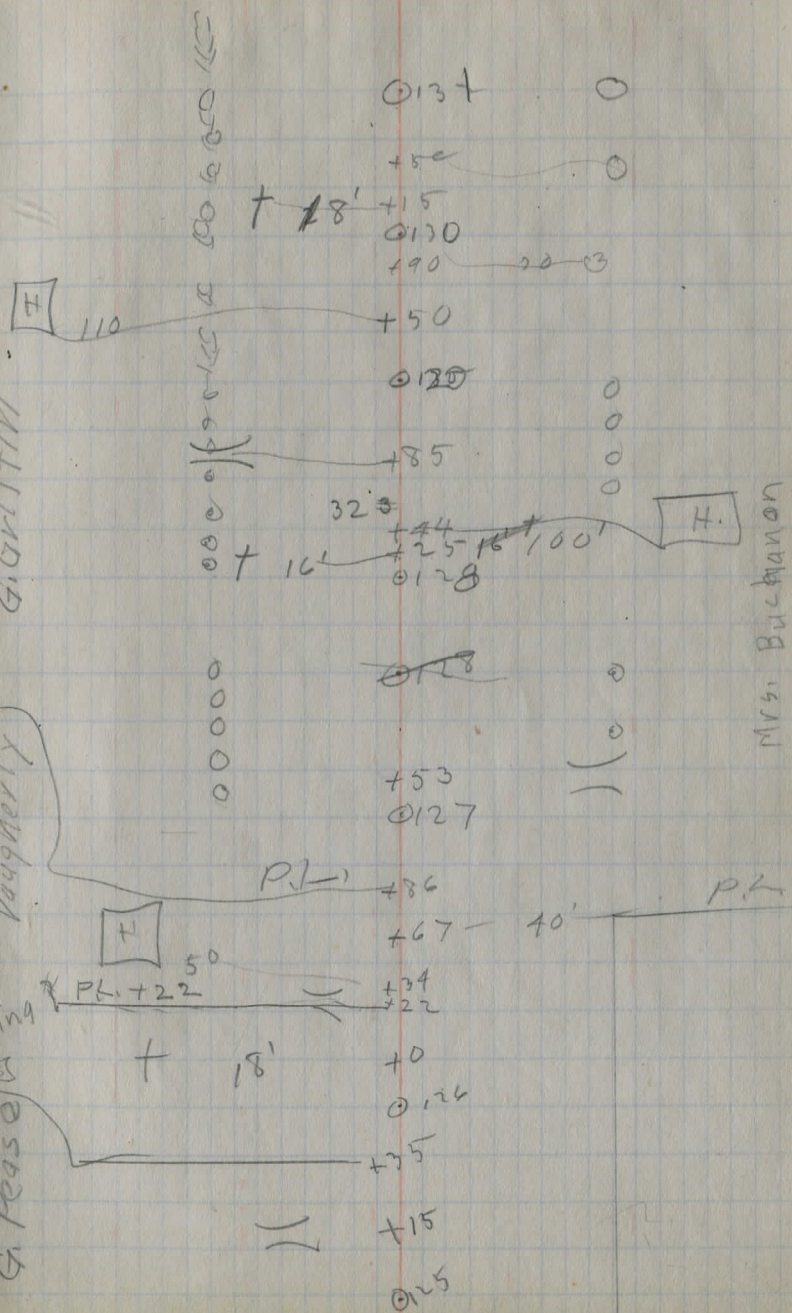 ⊙131
+50
+ 18' +15
⊙130
+90 20
H 110 +50
⊙130
+85
32
+44 16' 100' H.
+ 16' +25
⊙128
⊙128
+53
⊙127
P.L. +86
+67 40' P.L.
H
50 +34
P.L. +22 +22
+ 18' +0
⊙126
+35
+15
⊙125
G. Griffith
Daugherty
G. Pease
Mrs. Buchanon